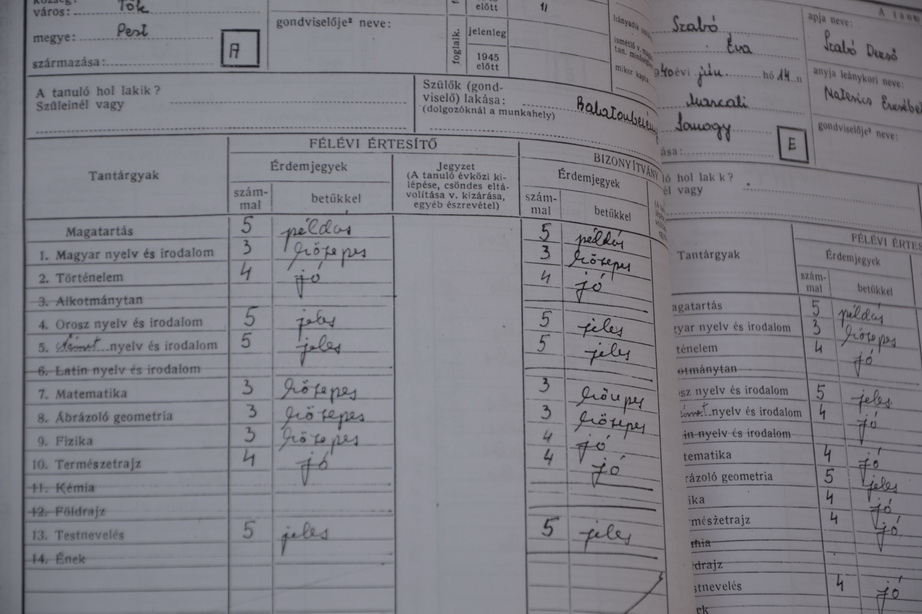 város: Tök
megye: Pest
származása: A
gondviselője² neve:
foglalk.
előtt
jelenleg
1945 előtt
A tanuló hol lakik?
Szüleinél vagy
Szülők (gondviselő) lakása:
(dolgozóknál a munkahely)
FÉLÉVI ÉRTESÍTŐ
BIZONYÍTVÁNY
Tantárgyak
Érdemjegyek
Jegyzet
(A tanuló évközi kilépése, csöndes eltávolítása v. kizárása, egyéb észrevétel)
Érdemjegyek
számmal betűkkel
számmal betűkkel
Magatartás 5 példás 5 példás
1. Magyar nyelv és irodalom 3 közepes 3 közepes
2. Történelem 4 jó 4 jó
3. Alkotmánytan
4. Orosz nyelv és irodalom 5 jeles 5 jeles
5. Német nyelv és irodalom 5 jeles 5 jeles
6. Latin nyelv és irodalom
7. Matematika 3 közepes 3 közepes
8. Ábrázoló geometria 3 közepes 3 közepes
9. Fizika 3 közepes 4 jó
10. Természetrajz 4 jó 4 jó
11. Kémia
12. Földrajz
13. Testnevelés 5 jeles 5 jeles
14. Ének
Szabó
Éva
évi jún. hó 14.n
Marcali
Somogy
E
apja neve:
Szabó Dezső
anyja leánykori neve:
gondviselője² neve:
hol lakik?
él vagy
Tantárgyak
FÉLÉVI ÉRTES
Érdemjegyek
számmal betűkkel
agatartás 5 példás
yar nyelv és irodalom 3 közepes
ténelem 4 jó
otmánytan
sz nyelv és irodalom 5 jeles
nyelv és irodalom 4 jó
in nyelv és irodalom
tematika 4 jó
rázoló geometria 5 jeles
ika 4 jó
mészetrajz 4 jó
mia
drajz
stnevelés 4 jó
ek